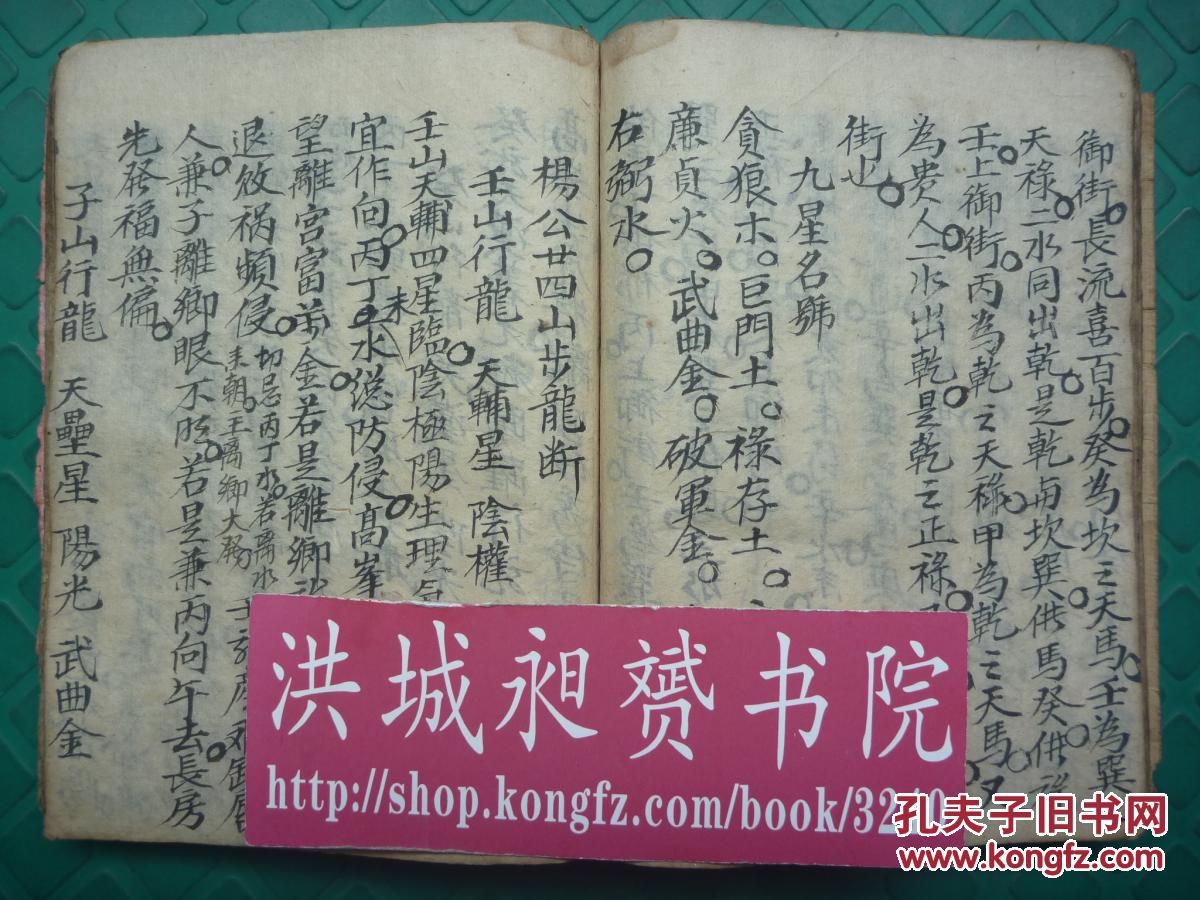 御街。長流喜百步。癸為坎之天馬。壬為巽
天祿。二水同出乾。是乾與坎巽供馬。癸供
壬上御街。丙為乾之天祿。甲為乾之天馬。又
為贵人。二水出乾。是乾之正祿
街也。
九星名號
貪狼木。巨門土。祿存土。
廉貞火。武曲金。破軍金。
右弼水。
楊公廿四山步龍断
壬山行龍 天輔星 陰權
壬山天輔四星臨。陰極陽生理
宜作向丙丁。未水総防侵。高峯
望離宮富萬金。若是離鄉
退敗祸頻侵。切忌丙丁水。若离水
来朝。主离鄉大發
人兼子離鄉眼不明。若是兼丙向午去。長房
先發福無偏。
子山行龍 天壘星 陽光 武曲金
洪城昶赟书院
http://shop.kongfz.com/book/3240
孔夫子旧书网
www.kongfz.com